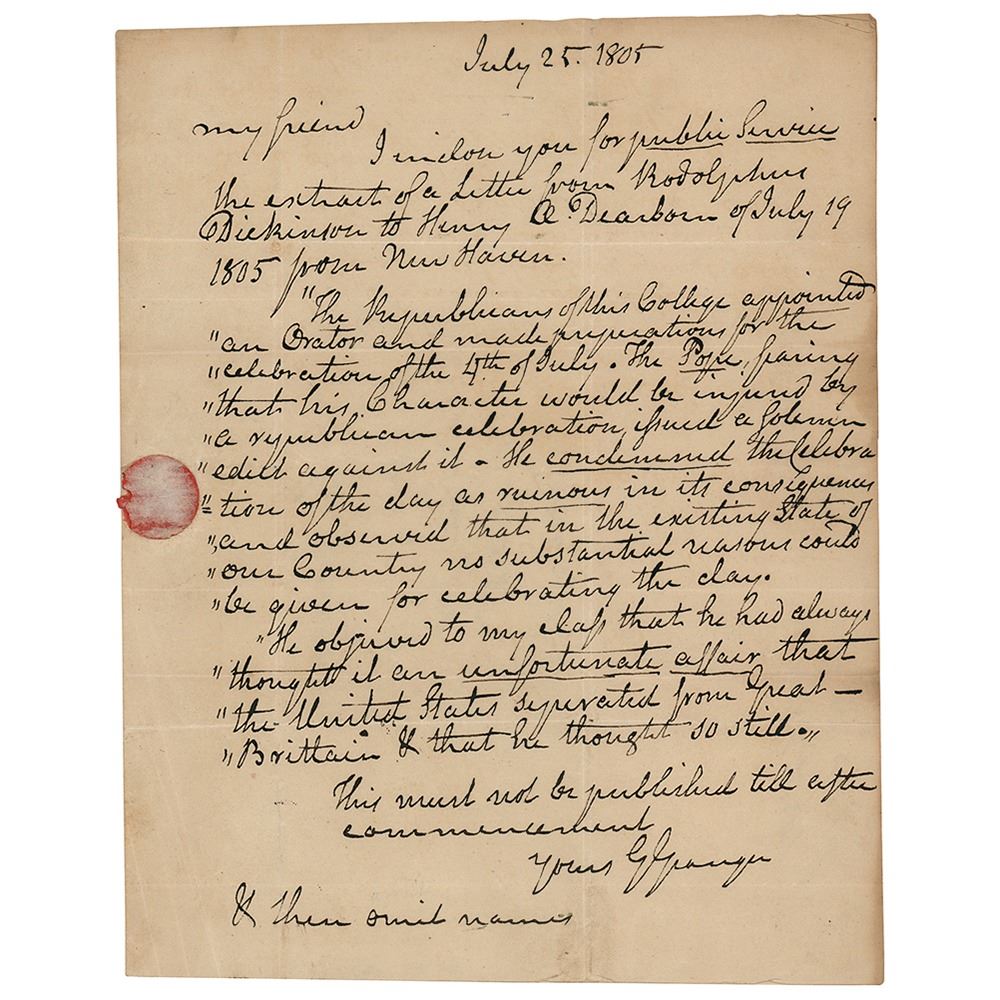 July 25. 1805
my friend
I inclose you for public Service
the extract of a Letter from Rodolphus
Dickinson to Henry A. Dearborn of July 19
1805 from New Haven.
"The Republicans of this College appointed
"an Orator and made preparations for the
"celebration of the 4th of July. The Pope, fearing
"that his Character would be injured by
"a republican celebration, issued a Solemn
"edict against it - He condemned the Celebra
"=tion of the day as ruinous in its consequences
"and observed that in the existing State of
"our Country no substantial reasons could
"be given for celebrating the day.
"He observed to my class that he had always
"thought it an unfortunate affair that
"the United States seperated from Great -
"Brittain & that he thought so still."
This must not be published till after
commencement
yours G Granger
& then omit names